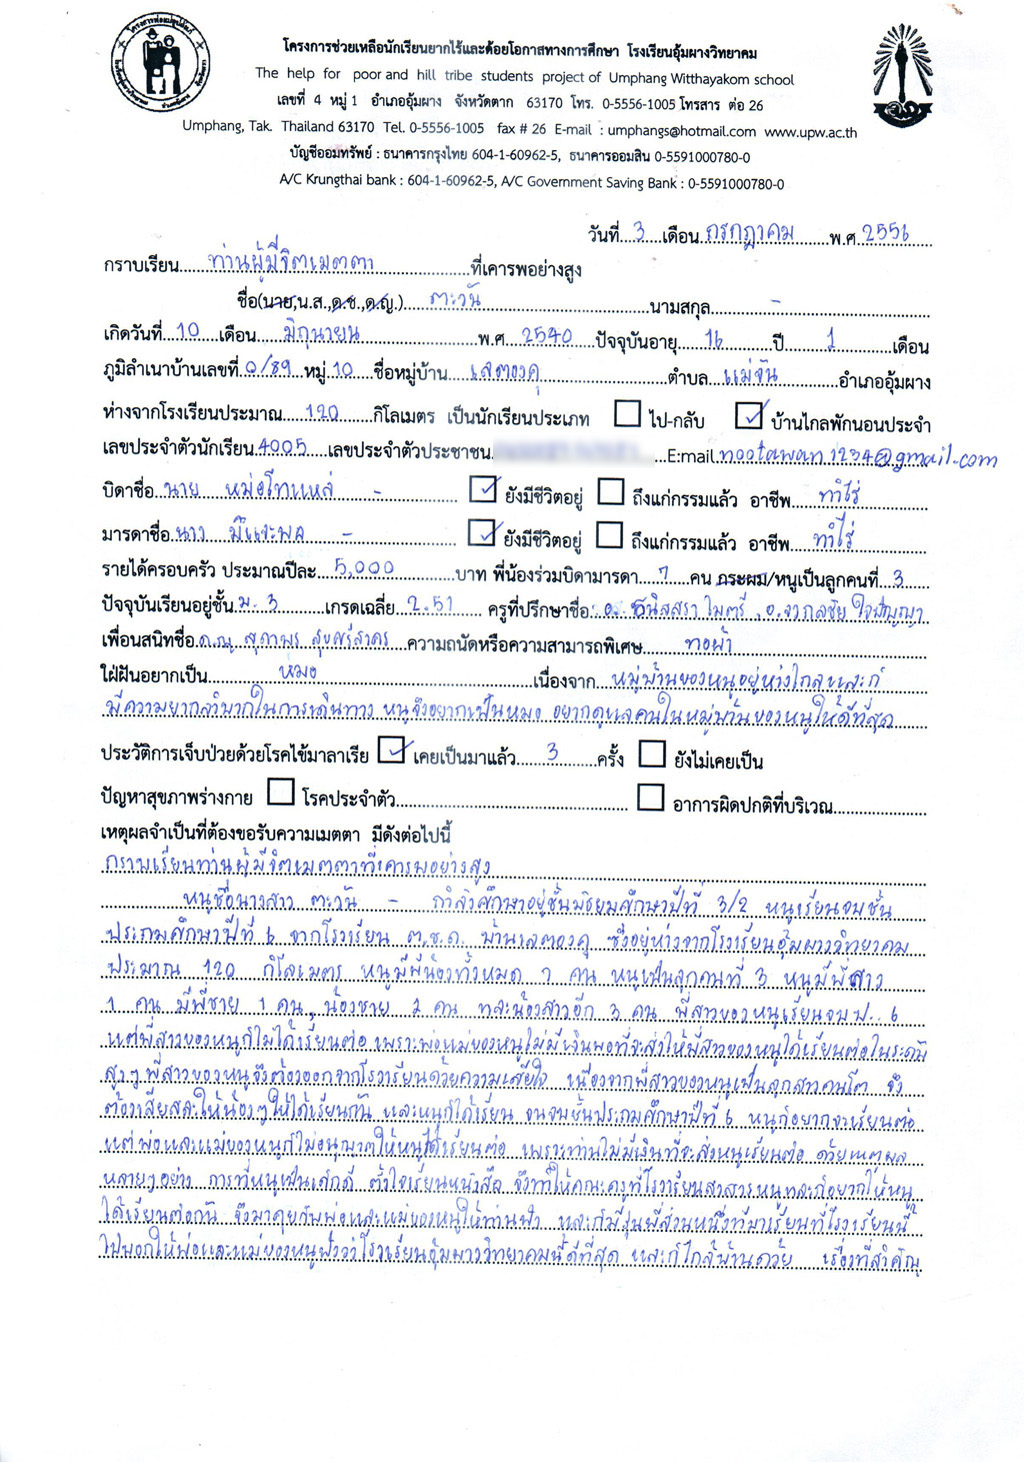 โครงการช่วยเหลือนักเรียนยากไร้และด้อยโอกาสทางการศึกษา โรงเรียนอุ้มผางวิทยาคม
The help for poor and hill tribe students project of Umphang Witthayakom school
เลขที่ 4 หมู่ 1 อำเภออุ้มผาง จังหวัดตาก 63170 โทร. 0-5556-1005 โทรสาร ต่อ 26
Umphang, Tak. Thailand 63170 Tel. 0-5556-1005 fax # 26 E-mail : umphangs@hotmail.com www.upw.ac.th
บัญชีออมทรัพย์ : ธนาคารกรุงไทย 604-1-60962-5, ธนาคารออมสิน 0-5591000780-0
A/C Krungthai bank : 604-1-60962-5, A/C Government Saving Bank : 0-5591000780-0
วันที่ 3 เดือน กรกฎาคม พ.ศ. 2556
กราบเรียน ท่านผู้มีจิตเมตตา ที่เคารพอย่างสูง
ชื่อ(นาย,น.ส.,ด.ช.,ด.ญ.) ตะวัน นามสกุล -
เกิดวันที่ 10 เดือน มิถุนายน พ.ศ. 2540 ปัจจุบันอายุ 16 ปี 1 เดือน
ภูมิลำเนาบ้านเลขที่ 0/89 หมู่ 10 ชื่อหมู่บ้าน เลตองคุ ตำบล แม่จัน อำเภออุ้มผาง
ห่างจากโรงเรียนประมาณ 120 กิโลเมตร เป็นนักเรียนประเภท ไป-กลับ บ้านไกลพักนอนประจำ
เลขประจำตัวนักเรียน 4005 เลขประจำตัวประชาชน E:mail nootawan1234@gmail.com
บิดาชื่อ นาย หม่อโทแหล่ - ยังมีชีวิตอยู่ ถึงแก่กรรมแล้ว อาชีพ ทำไร่
มารดาชื่อ นาง - ยังมีชีวิตอยู่ ถึงแก่กรรมแล้ว อาชีพ ทำไร่
รายได้ครอบครัว ประมาณปีละ 5,000 บาท พี่น้องร่วมบิดามารดา 7 คน กระผม/หนูเป็นลูกคนที่ 3
ปัจจุบันเรียนอยู่ชั้น ม.3 เกรดเฉลี่ย 2.51 ครูที่ปรึกษาชื่อ ไมตรี , อ.จากลชัย ใจปัญญา
เพื่อนสนิทชื่อ ด.ญ. สุภาพร สุขศรีสาคร ความถนัดหรือความสามารถพิเศษ ทอผ้า
ใฝ่ฝันอยากเป็น หมอ เนื่องจาก หมู่บ้านของหนูอยู่ห่างไกลและก็
มีความยากลำบากในการเดินทาง หนูจึงอยากเป็นหมอ อยากดูแลคนในหมู่บ้านของหนูให้ดีที่สุด
ประวัติการเจ็บป่วยด้วยโรคไข้มาลาเรีย เคยเป็นมาแล้ว 3 ครั้ง ยังไม่เคยเป็น
ปัญหาสุขภาพร่างกาย โรคประจำตัว อาการผิดปกติที่บริเวณ
เหตุผลจำเป็นที่ต้องขอรับความเมตตา มีดังต่อไปนี้
กราบเรียนท่านผู้มีจิตเมตตาที่เคารพอย่างสูง
หนูชื่อนางสาว ตะวัน - กำลังศึกษาอยู่ชั้นมัธยมศึกษาปีที่ 3/2 หนูเรียนจบชั้น
ประถมศึกษาปีที่ 6 จากโรงเรียน ต.ช.ด. บ้านเลตองคุ ซึ่งอยู่ห่างจากโรงเรียนอุ้มผางวิทยาคม
ประมาณ 120 กิโลเมตร หนูมีพี่น้องทั้งหมด 7 คน หนูเป็นลูกคนที่ 3 หนูมีพี่สาว
1 คน มีพี่ชาย 1 คน น้องชาย 2 คน และน้องสาวอีก 3 คน พี่สาวของหนูเรียนจบ ป. 6
แต่พี่สาวของหนูก็ไม่ได้เรียนต่อ เพราะพ่อแม่ของหนูไม่มีเงินพอที่จะส่งให้พี่สาวของหนูได้เรียนต่อในระดับ
สูงๆ พี่สาวของหนูจึงต้องออกจากโรงเรียนด้วยความเสียใจ เนื่องจากพี่สาวของหนูเป็นลูกสาวคนโต จึง
ต้องเสียสละให้น้องๆ ให้ได้เรียนกัน และหนูก็ได้เรียน จนจบชั้นประถมศึกษาปีที่ 6 หนูก็อยากจะเรียนต่อ
แต่พ่อและแม่ของหนูก็ไม่อนุญาตให้หนูได้เรียนต่อ เพราะท่านไม่มีเงินที่จะส่งหนูเรียนต่อ ด้วยเหตุผล
หลายๆ อย่าง การที่หนูเป็นเด็กดี ตั้งใจเรียนหนังสือ จึงทำให้คณะครูที่โรงเรียนสงสารหนูและก็อยากให้หนู
ได้เรียนต่อ จึงมาคุยกับพ่อและแม่ของหนูให้ท่านฟัง และก็มีรุ่นพี่ส่วนหนึ่งที่มาเรียนที่โรงเรียนนี้
ไปบอกให้พ่อและแม่ของหนูฟังว่าโรงเรียนอุ้มผางวิทยาคมนี้ดีที่สุด และก็ใกล้บ้านด้วย เรื่องที่สำคัญ